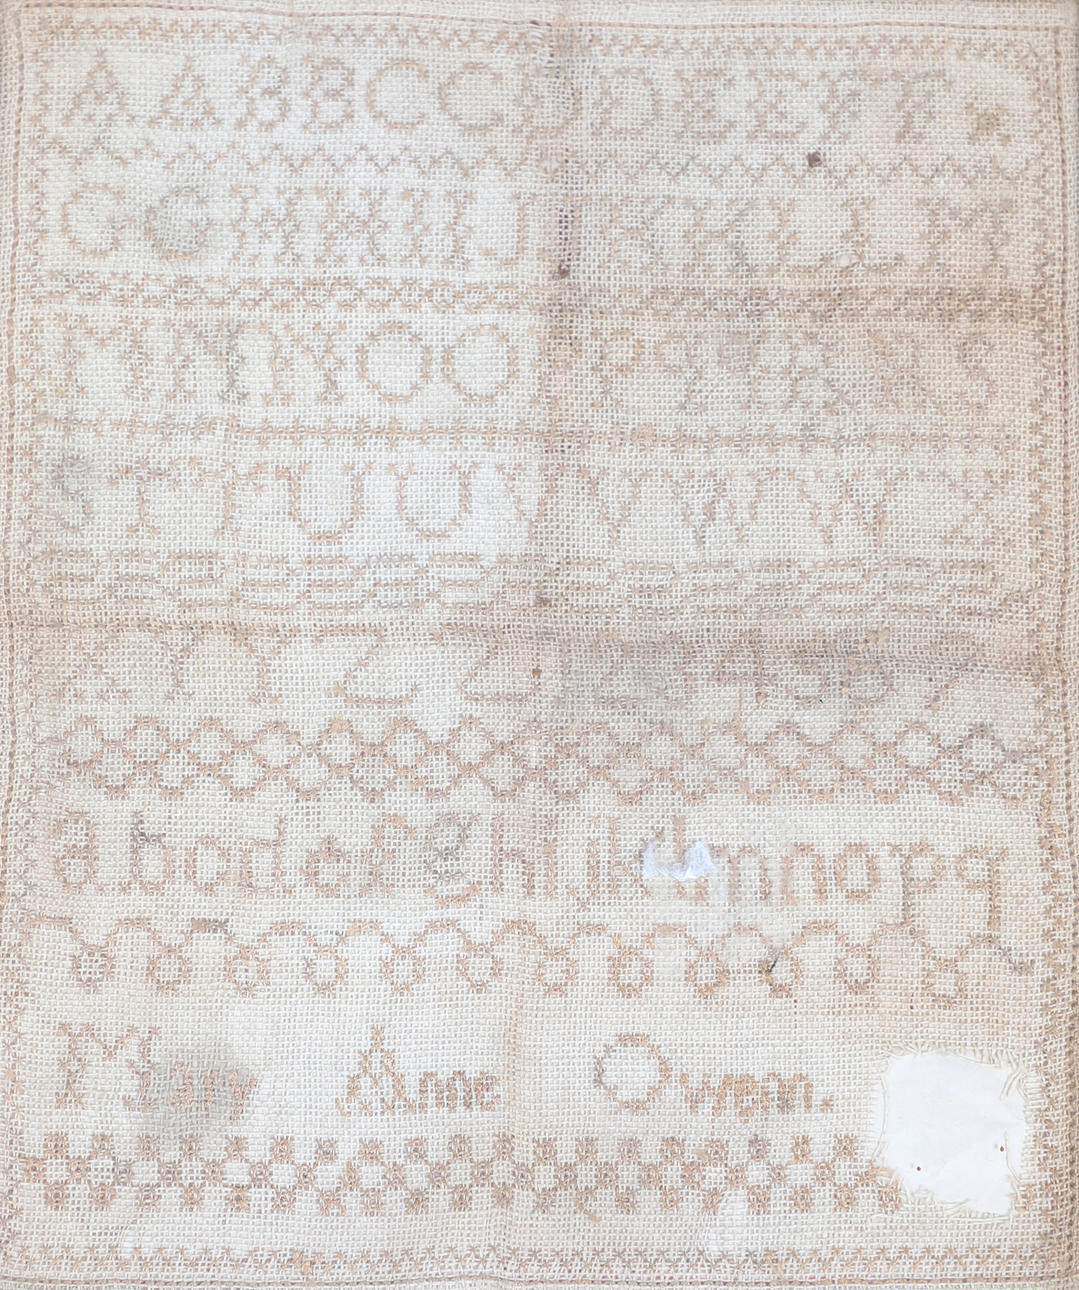 A A B B C C D D E E F F
G G H H I I J J K K L L M
M N N O O P P Q Q R R S
S T T U U V V W W X
X Y Y Z Z 1 2 3 4 5 6 7
a b c d e f g h i j k l m n o p q
Mary Ann Owen.